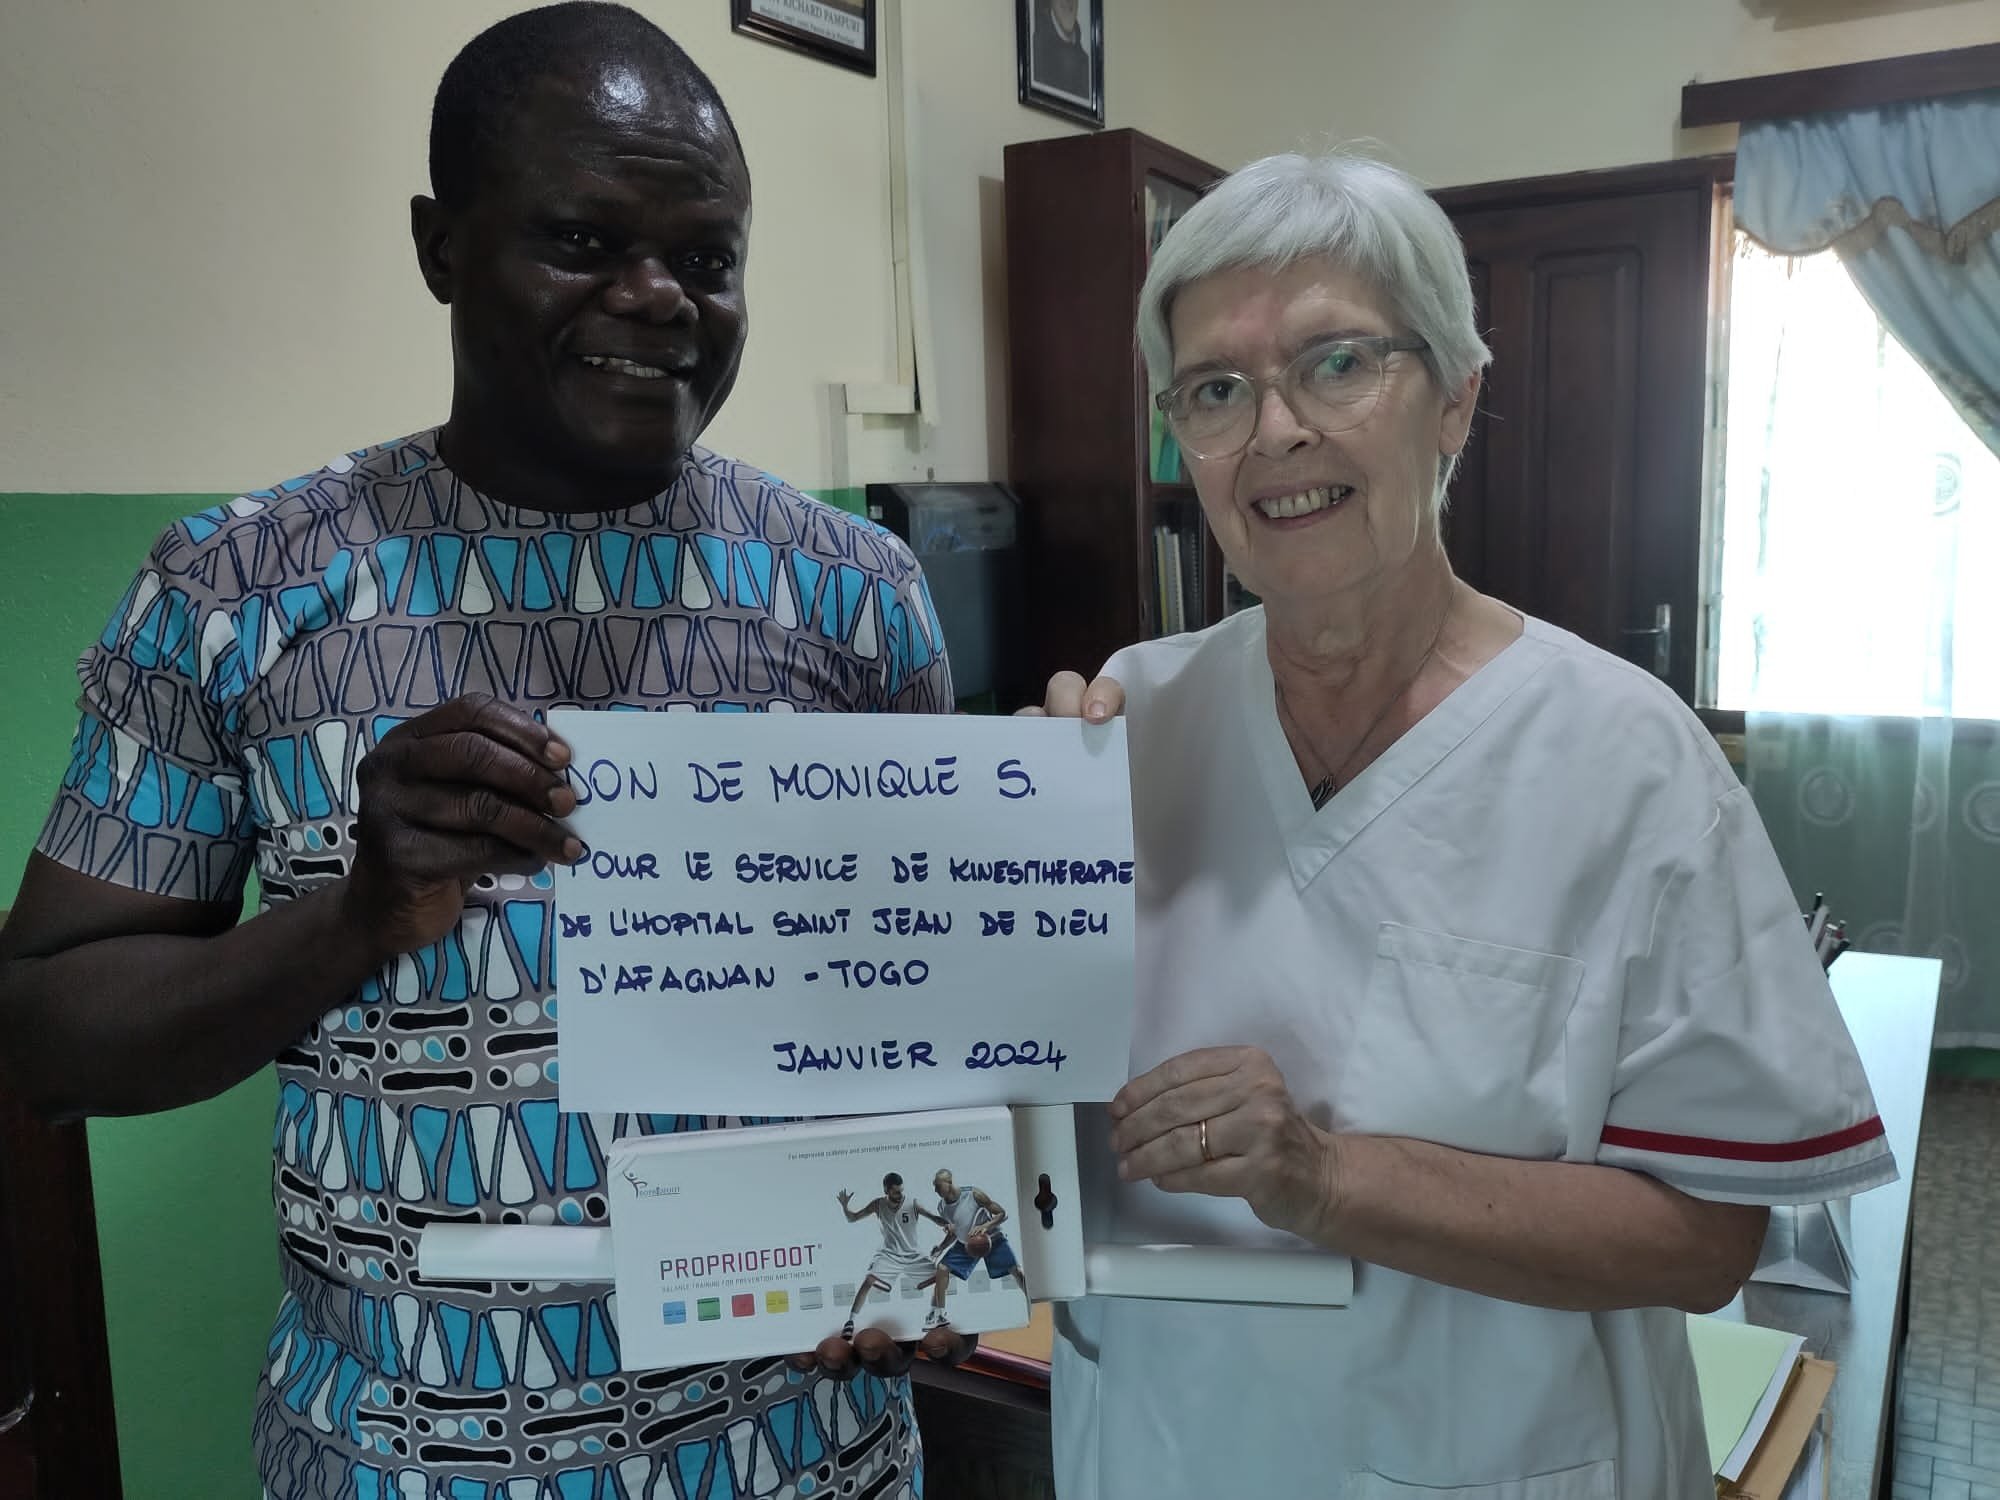 RICHARD PAMPURI
DON DE MONIQUE S.
POUR LE SERVICE DE KINESITHERAPIE
DE L'HOPITAL SAINT JEAN DE DIEU
D'AFAGNAN - TOGO
JANVIER 2024
For improved stability and strengthening of the muscles of ankles and feet.
PROPRIOFOOT
PROPRIOFOOT®
BALANCE TRAINING FOR PREVENTION AND THERAPY
5